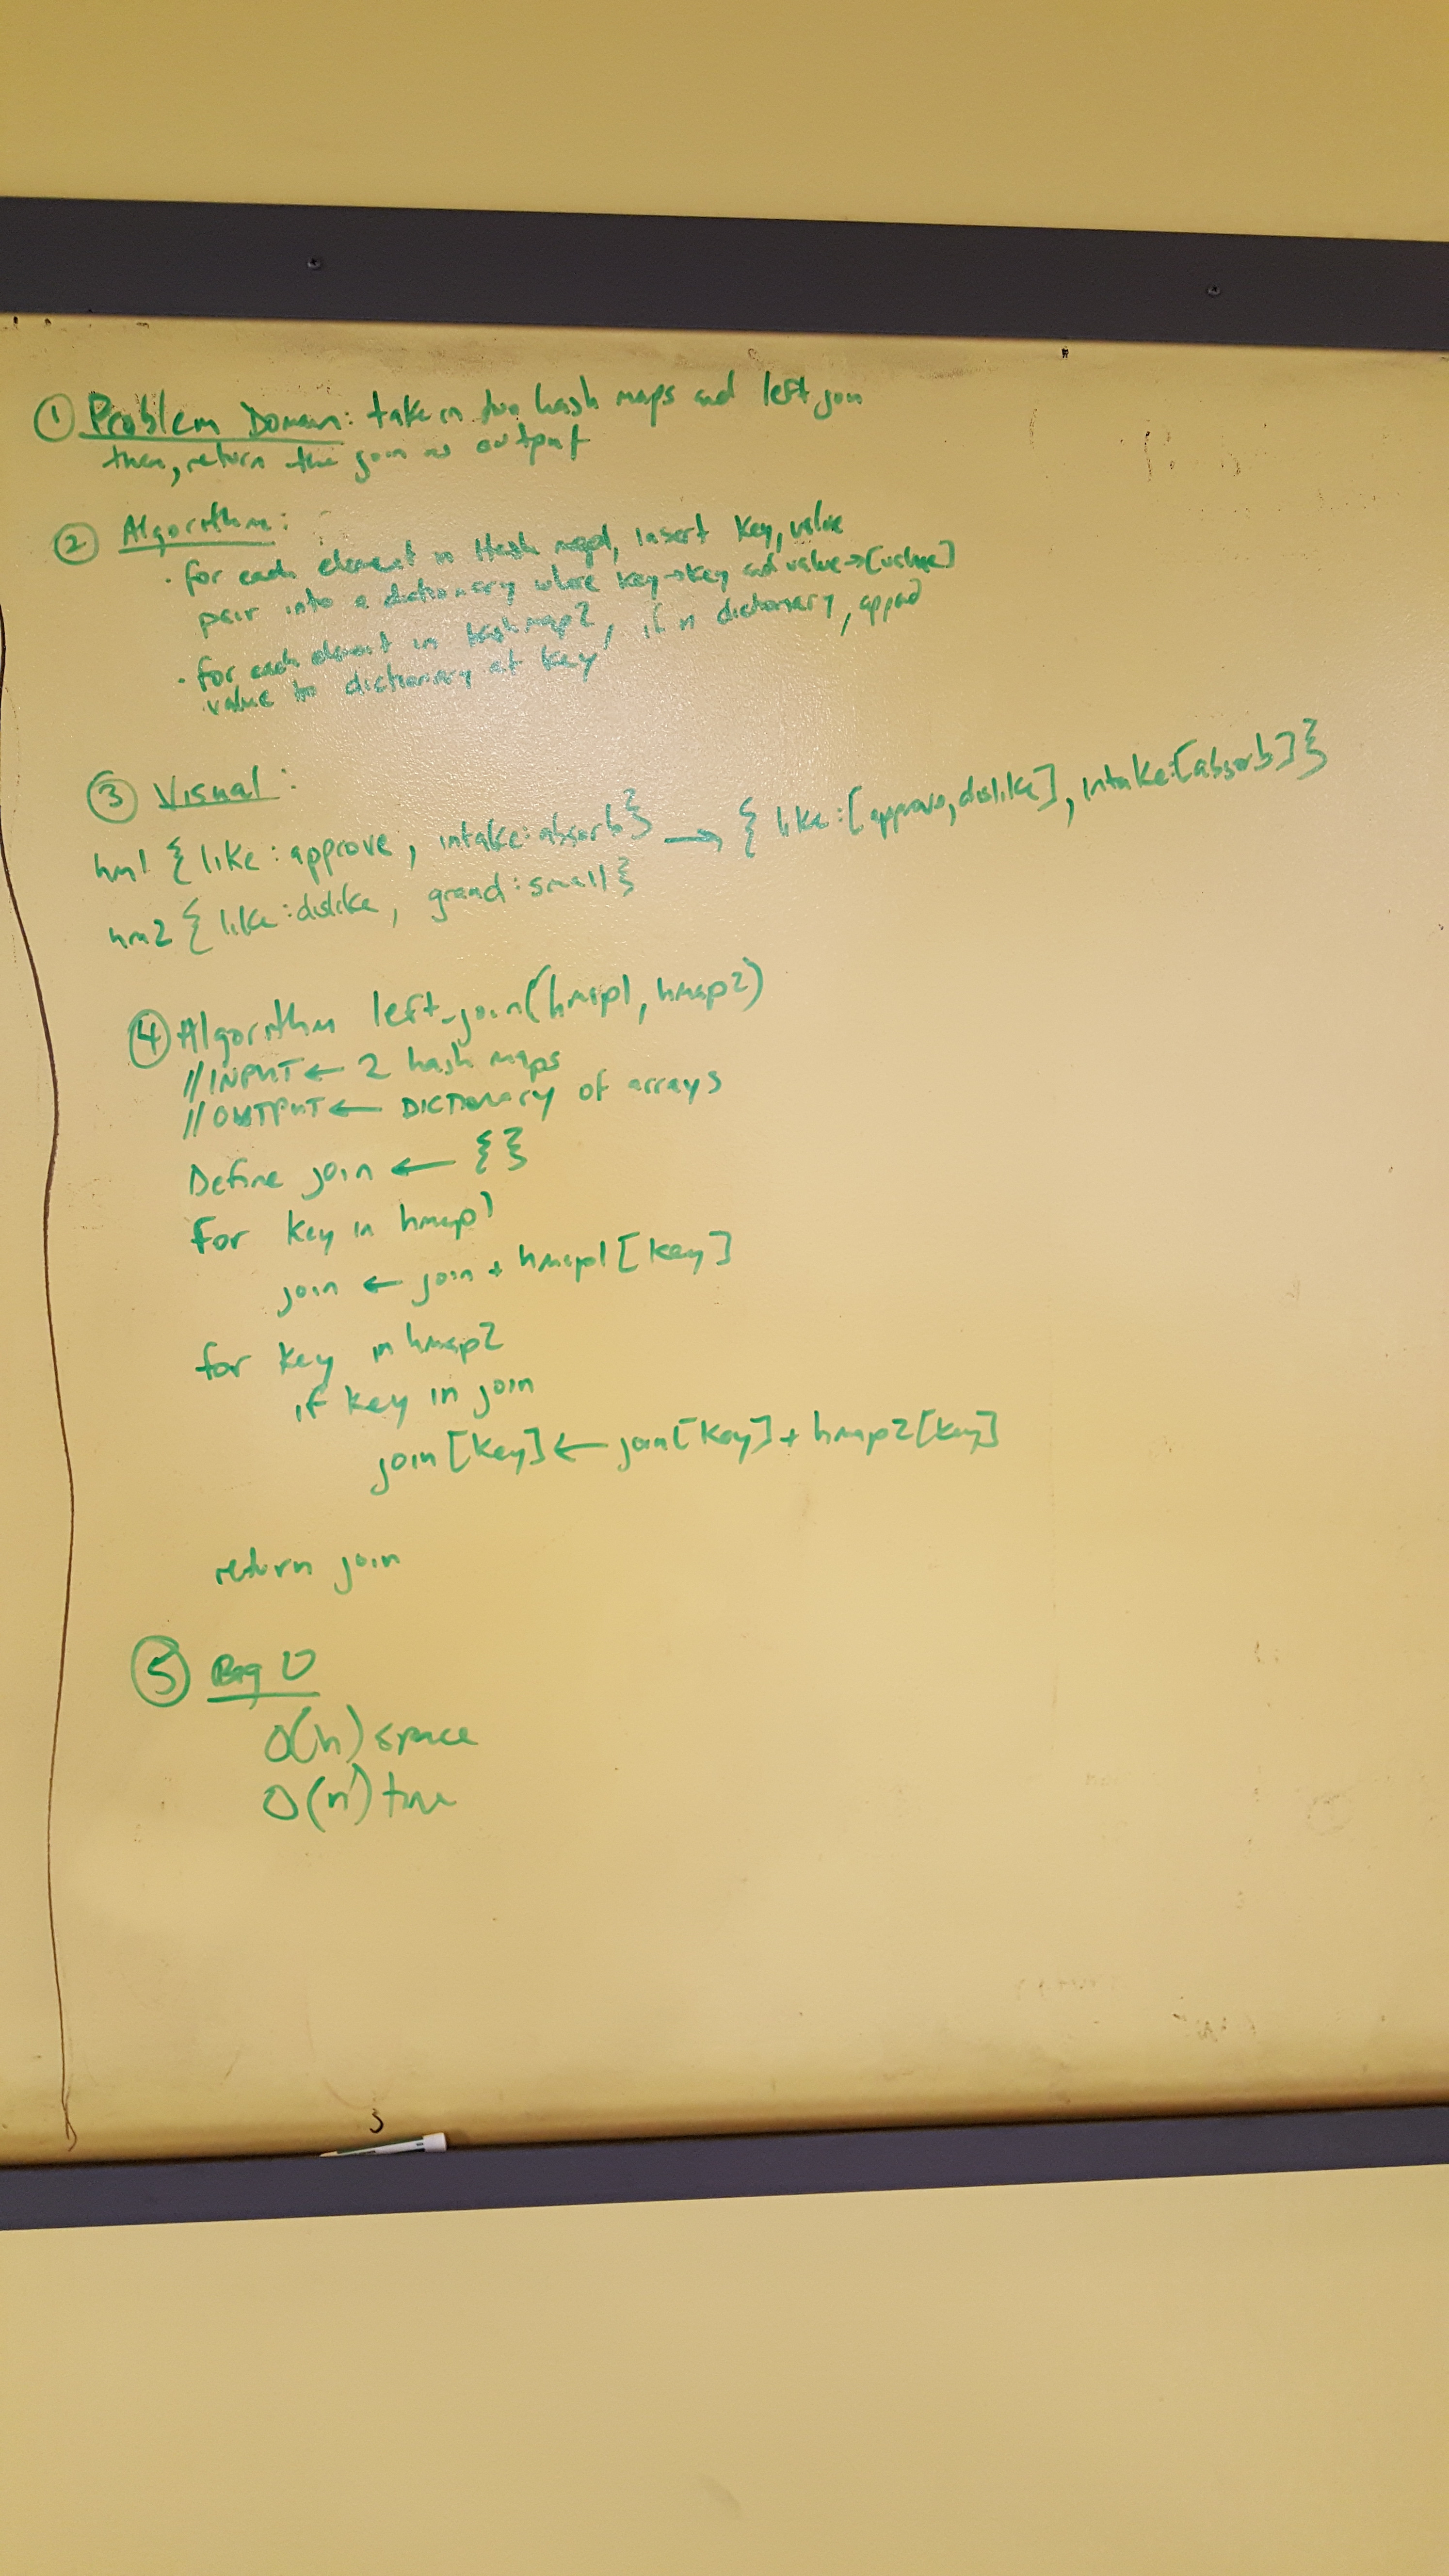 ① Problem Domain: take in two hash maps and left join
then, return the join as output
② Algorithm:
· for each element in Hash map1, insert key, value
pair into a dictionary where key→key and value→[value]
· for each element in hashmap2, if in dictionary, append
value to dictionary at key
③ Visual:
hm1 {like: approve, intake: absorb} → {like:[approve, dislike], intake:[absorb]}
hm2 {like: dislike, grand: small}
④ Algorithm left_join(hmap1, hmap2)
// INPUT ← 2 hash maps
// OUTPUT ← Dictionary of arrays
Define join ← {}
for key in hmap1
join ← join + hmap1[key]
for key in hmap2
if key in join
join[key] ← join[key] + hmap2[key]
return join
⑤ Big O
O(n) space
O(n) time